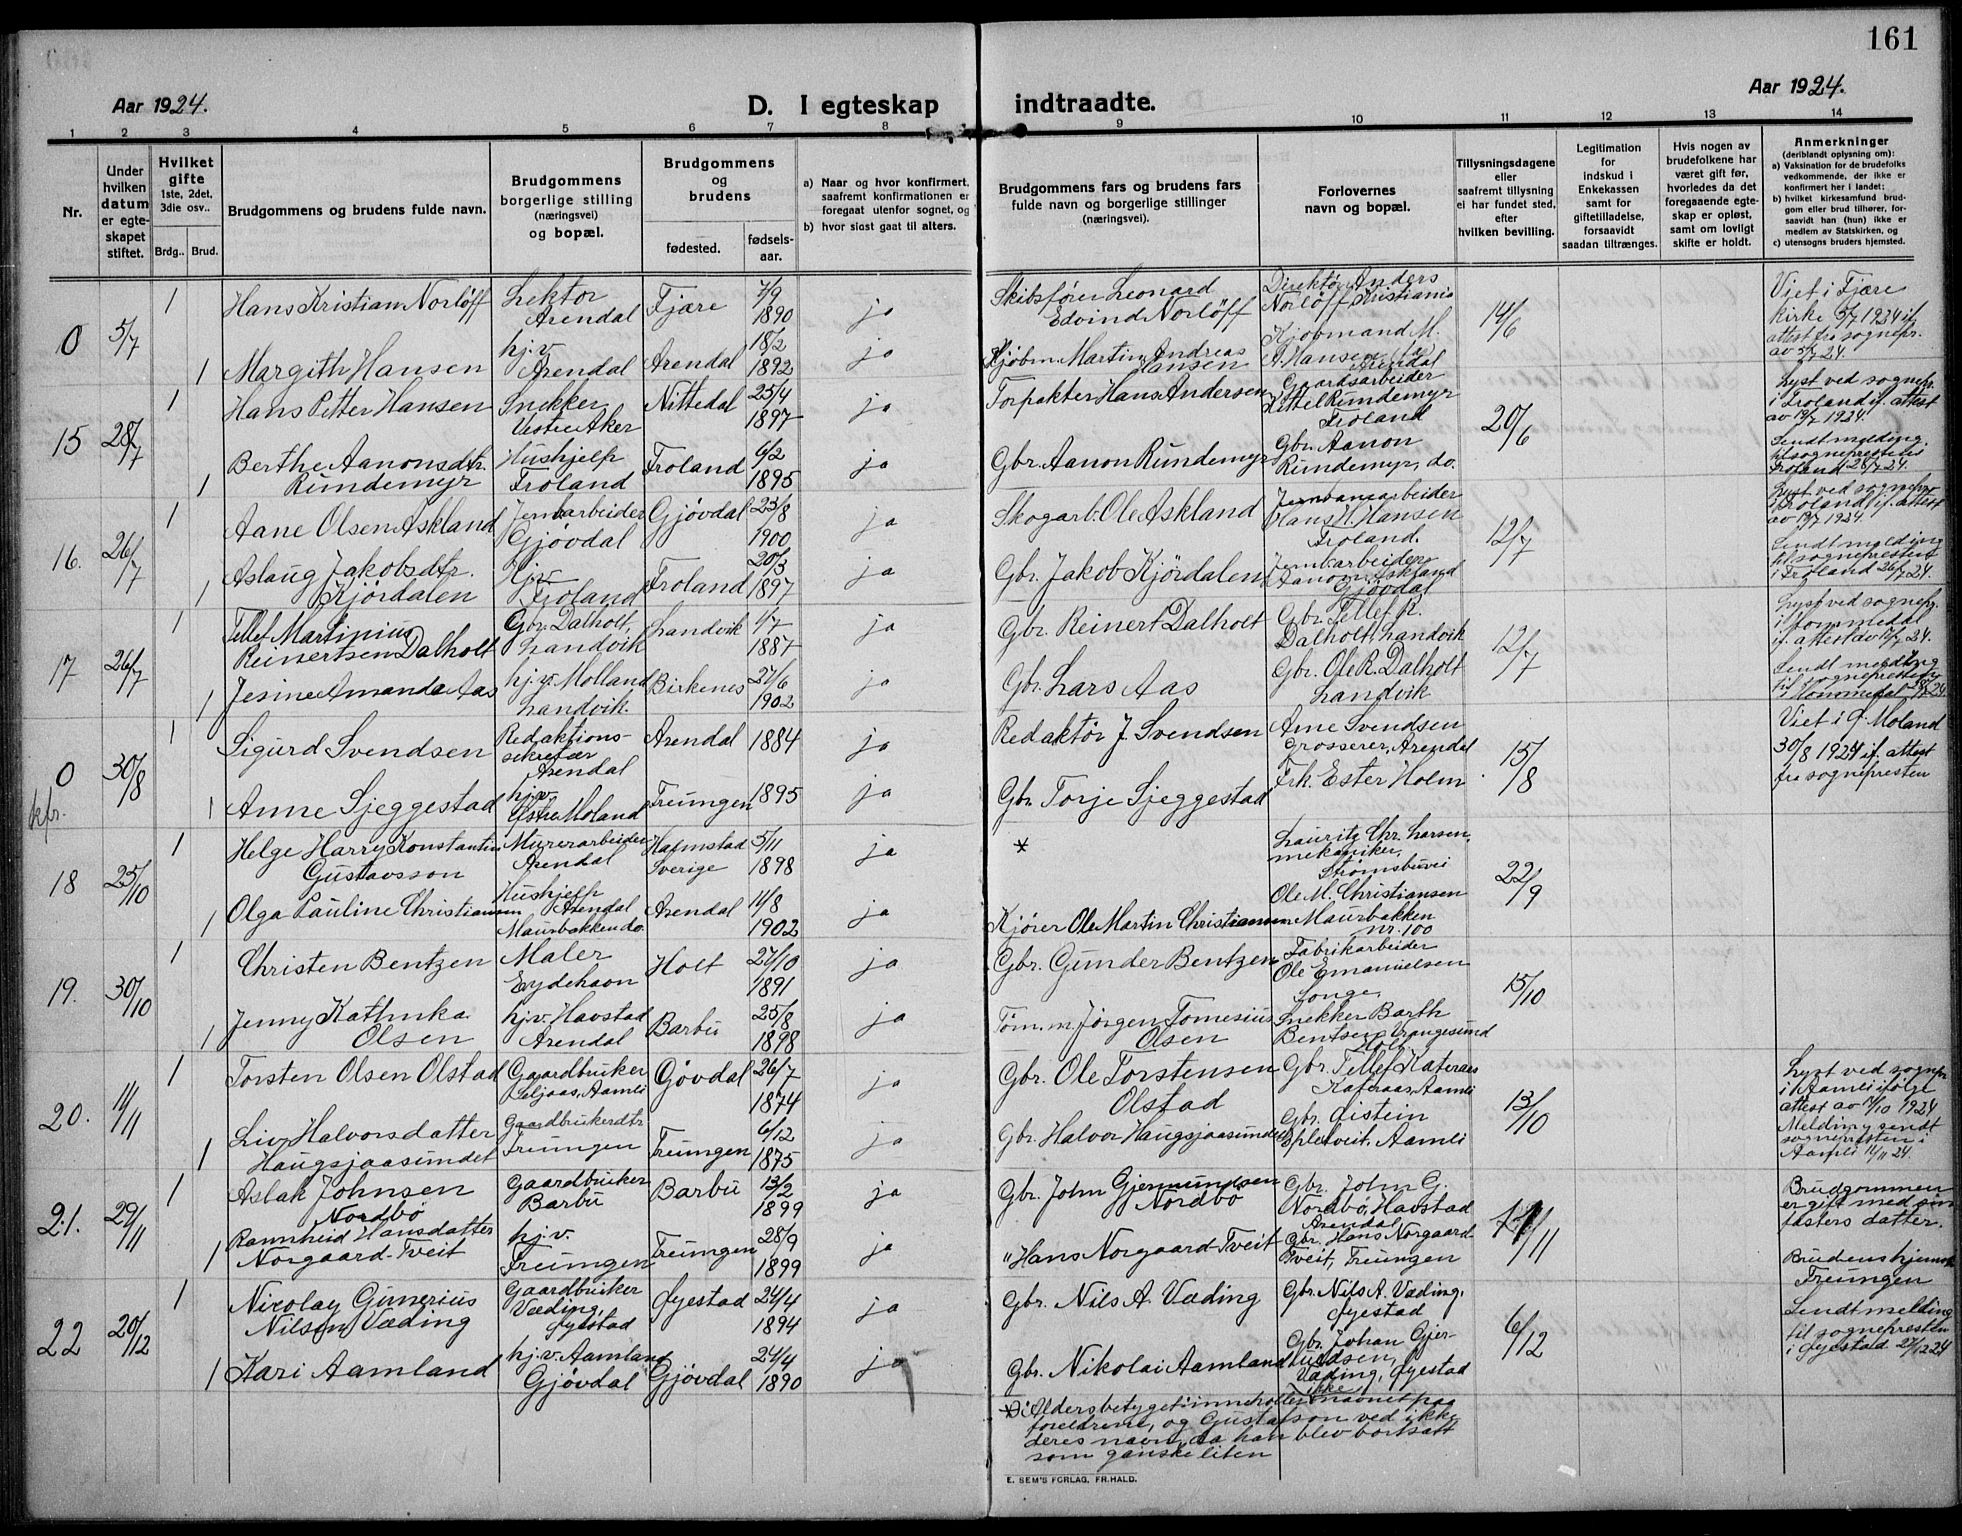 161
Aar 1924.
D. I egteskap indtraadte.
Aar 1924.
1 2 3 4 5 6 7 8 9 10 11 12 13 14
Nr.
Under hvilken datum er egteskapet stiftet.
Hvilket gifte
1ste, 2det, 3die osv..
Brdg.. Brud.
Brudgommens og brudens fulde navn.
Brudgommens borgerlige stilling (næringsvei) og bopæl.
Brudgommens og brudens
fødested. fødsels-aar.
a) Naar og hvor konfirmert, saafremt konfirmationen er foregaat utenfor sognet, og
b) hvor sidst gaat til alters.
Brudgommens fars og brudens fars fulde navn og borgerlige stillinger (næringsvei).
Forlovernes navn og bopæl.
Tillysningsdagene eller saafremt tillysning ei har fundet sted, efter hvilken bevilling.
Legitimation for indskud i Enkekassen samt for giftetilladelse, forsaavidt saadan tiltrænges.
Hvis nogen av brudefolkene har været gift før, hvorledes da det foregaaende egteskap er opløst, samt om lovligt skifte er holdt.
Anmerkninger
(deriblandt oplysning om):
a) Vaksination for de brudefolks vedkommende, der ikke er konfirmert her i landet;
b) hvilket kirkesamfund brudgom eller brud tilhører, forsaavidt han (hun) ikke er medlem av Statskirken, og
c) utensogns bruders hjemsted.
0 5/7
1 Hans Kristian Norløff
Lektor Arendal
Fjære 7/9 1890 ja
Skibsfører Leonard Edvind Norløff
Direktør Anders Norløff Kristiania
14/6
Viet i Fjære kirke 5/7 1924 if. attest fra sognepr. av 5/7 24.
1 Margith Hansen
hj.v. Arendal
Arendal 18/2 1892 ja
Kjøbm. Martin Andreas Hansen
Kjøbmand M. A. Hansen Arendal
15 28/7
1 Hans Petter Hansen
Snekker Vestre Aker
Nittedal 25/4 1897 ja
Forpakter Hans Andersen
Gaardsarbeider Kittel Rundemyr Froland
20/6
Lyst ved sognepr. i Froland if. attest av 19/7 1924.
1 Berthe Aanonsdtr. Rundemyr
Hushjelp Froland
Froland 6/2 1895 ja
Gbr. Aanon Rundemyr
Gbr. Aanon Rundemyr, do.
Sendt melding til sognepresten i Froland 28/7 24.
16. 26/7
1 Aane Olsen Askland
Jernbarbeider Gjøvdal
Gjøvdal 23/8 1900 ja
Skogarb. Ole Askland
Jernbanearbeider Hans H. Hansen Froland.
12/7
Lyst ved sognepr. i Froland if. attest av 19/7 1924.
1 Aslaug Jakobsdtr. Kjørdalen
Hj.v. Froland
Froland 20/3 1897 ja
Gbr. Jakob Kjørdalen
Jernbarbeider Aanon Askland Gjøvdal
Sendt melding til sognepresten i Froland 26/7 24.
17 26/7
1 Tellef Martinius Reinertsen Dalholt
Gbr. Dalholt, Landvik
Landvik 4/7 1887 ja
Gbr. Reinert Dalholt
Gbr. Tellef R. Dalholt, Landvik
12/7
Lyst ved sognepr. i Hommedal if. attest av 12/7 24.
1 Jesine Amanda Aas
hj.v. Molland Landvik.
Birkenes 27/6 1902 ja
Gbr. Lars Aas
Gbr. Ole R. Dalholt Landvik
Sendt melding til sognepresten i Hommedal 28/7 24
0 kfr. 30/8
1 Sigurd Svendsen
Redaktionssekretær Arendal
Arendal 1884 ja
Redaktør J. Svendsen
Arne Svendsen Grosserer, Arendal
15/8
Viet i Ø. Moland 30/8 1924 if. attest fra sognepresten
1 Anne Sjeggestad
hj.v. Østre Moland
Treungen 1895 ja
Gbr. Torje Sjeggestad
Frk. Ester Holm
18 25/10
1 Helge Harry Konstantin Gustavsson
Murerarbeider Arendal
Halmstad Sverige 5/11 1898 ja
*
Lauritz Chr. Larsen, mekaniker, Strømsbuvei
22/9
1 Olga Pauline Christiansen
Hushjelp Arendal Maurbakken do.
Arendal 11/8 1902 ja
Kjører Ole Martin Christiansen
Ole M. Christiansen Maurbakken nr. 100
19. 30/10
1 Christen Bentzen
Maler Eydehavn
Holt 27/10 1891 ja
Gbr. Gunder Bentzen
Fabrikarbeider Ole Emanuelsen Songe,
15/10
1 Jenny Kathinka Olsen
hj.v. Havstad Arendal
Barbu 25/8 1898 ja
Tøm.m. Jørgen Tomesius Olsen
Snekker Barth Bentsen, Vrangesund Holt
20. 11/11
1 Torsten Olsen Olstad
Gaardbruker Seljaas, Aamli
Gjøvdal 26/7 1874 ja
Gbr. Ole Torstensen Olstad
Gbr. Tellef Kateraas Kateraas, Aamli
13/10
Lyst ved sognepr. i Aamli ifølge attest av 14/10 1924
1 Liv Halvorsdatter Haugsjaasundet
Gaardbrukerdtr. Treungen
Treungen 6/12 1875 ja
Gbr. Halvor Haugsjaasundet
Gbr. Eistein Epletveit, Aamli
Melding sendt sognepresten i Aamli 11/11 24.
21. 29/11
1 Aslak Johnsen Nordbø
Gaardbruker Barbu
Barbu 13/2 1899 ja
Gbr. John Gjermundsen Nordbø
Gbr. John G. Nordbø, Havstad Arendal
11/11
Brudgommen er gift med sin fasters datter.
1 Rannheid Hansdatter Norgaard-Tveit
hj.v. Treungen
Treungen 28/9 1899 ja
" Hans Norgaard-Tveit
Gbr. Hans Norgaard-Tveit, Treungen
Brudens hjemst. Treungen
22 20/12
1 Nicolay Gunerius Nilsen Væding
Gaardbruker Væding, Øyestad
Øyestad 24/4 1894 ja
Gbr. Nils A. Væding
Gbr. Nils A. Væding, Øyestad
6/12
Sendt melding til sognepresten i Øyestad 27/12 24
1 Kari Aamland
hj.v. Aamland Gjøvdal
Gjøvdal 24/4 1890 ja
Gbr. Nikolai Aamland
Gbr. Johan Gjerludsen, Væding, Øyestad
*) Aldersbetyget inneholder ikke navnet paa
foreldrene, og Gustafson ved ikke
deres navn, da han blev bortsatt
som ganske liten
E. SEM'S FORLAG, FR.HALD.